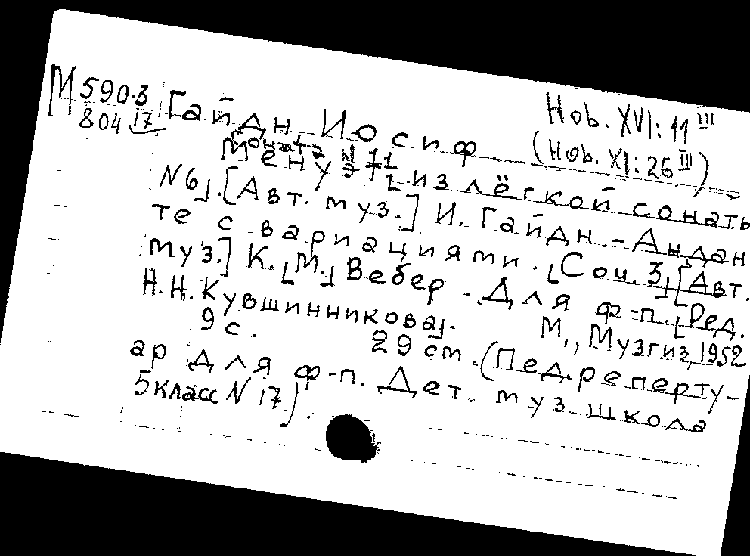 М 590.3
804 17
Гайдн, Иосиф
Ноб. XVI: 11 III
(Ноб. XI: 26 III)
Менуэт [из лёгкой сонаты
N 6]. [Авт. муз.] И. Гайдн. - Андан
те с вариациями. [Соч. 3] [Авт.
муз.] К. [М.] Вебер. - Для ф-п. [Ред.
Н. Н. Кувшинникова]. М., Музгиз, 1952
9 с. 29 см. (Пед. реперту-
ар для ф-п. Дет. муз. школа
5 класс N 17).